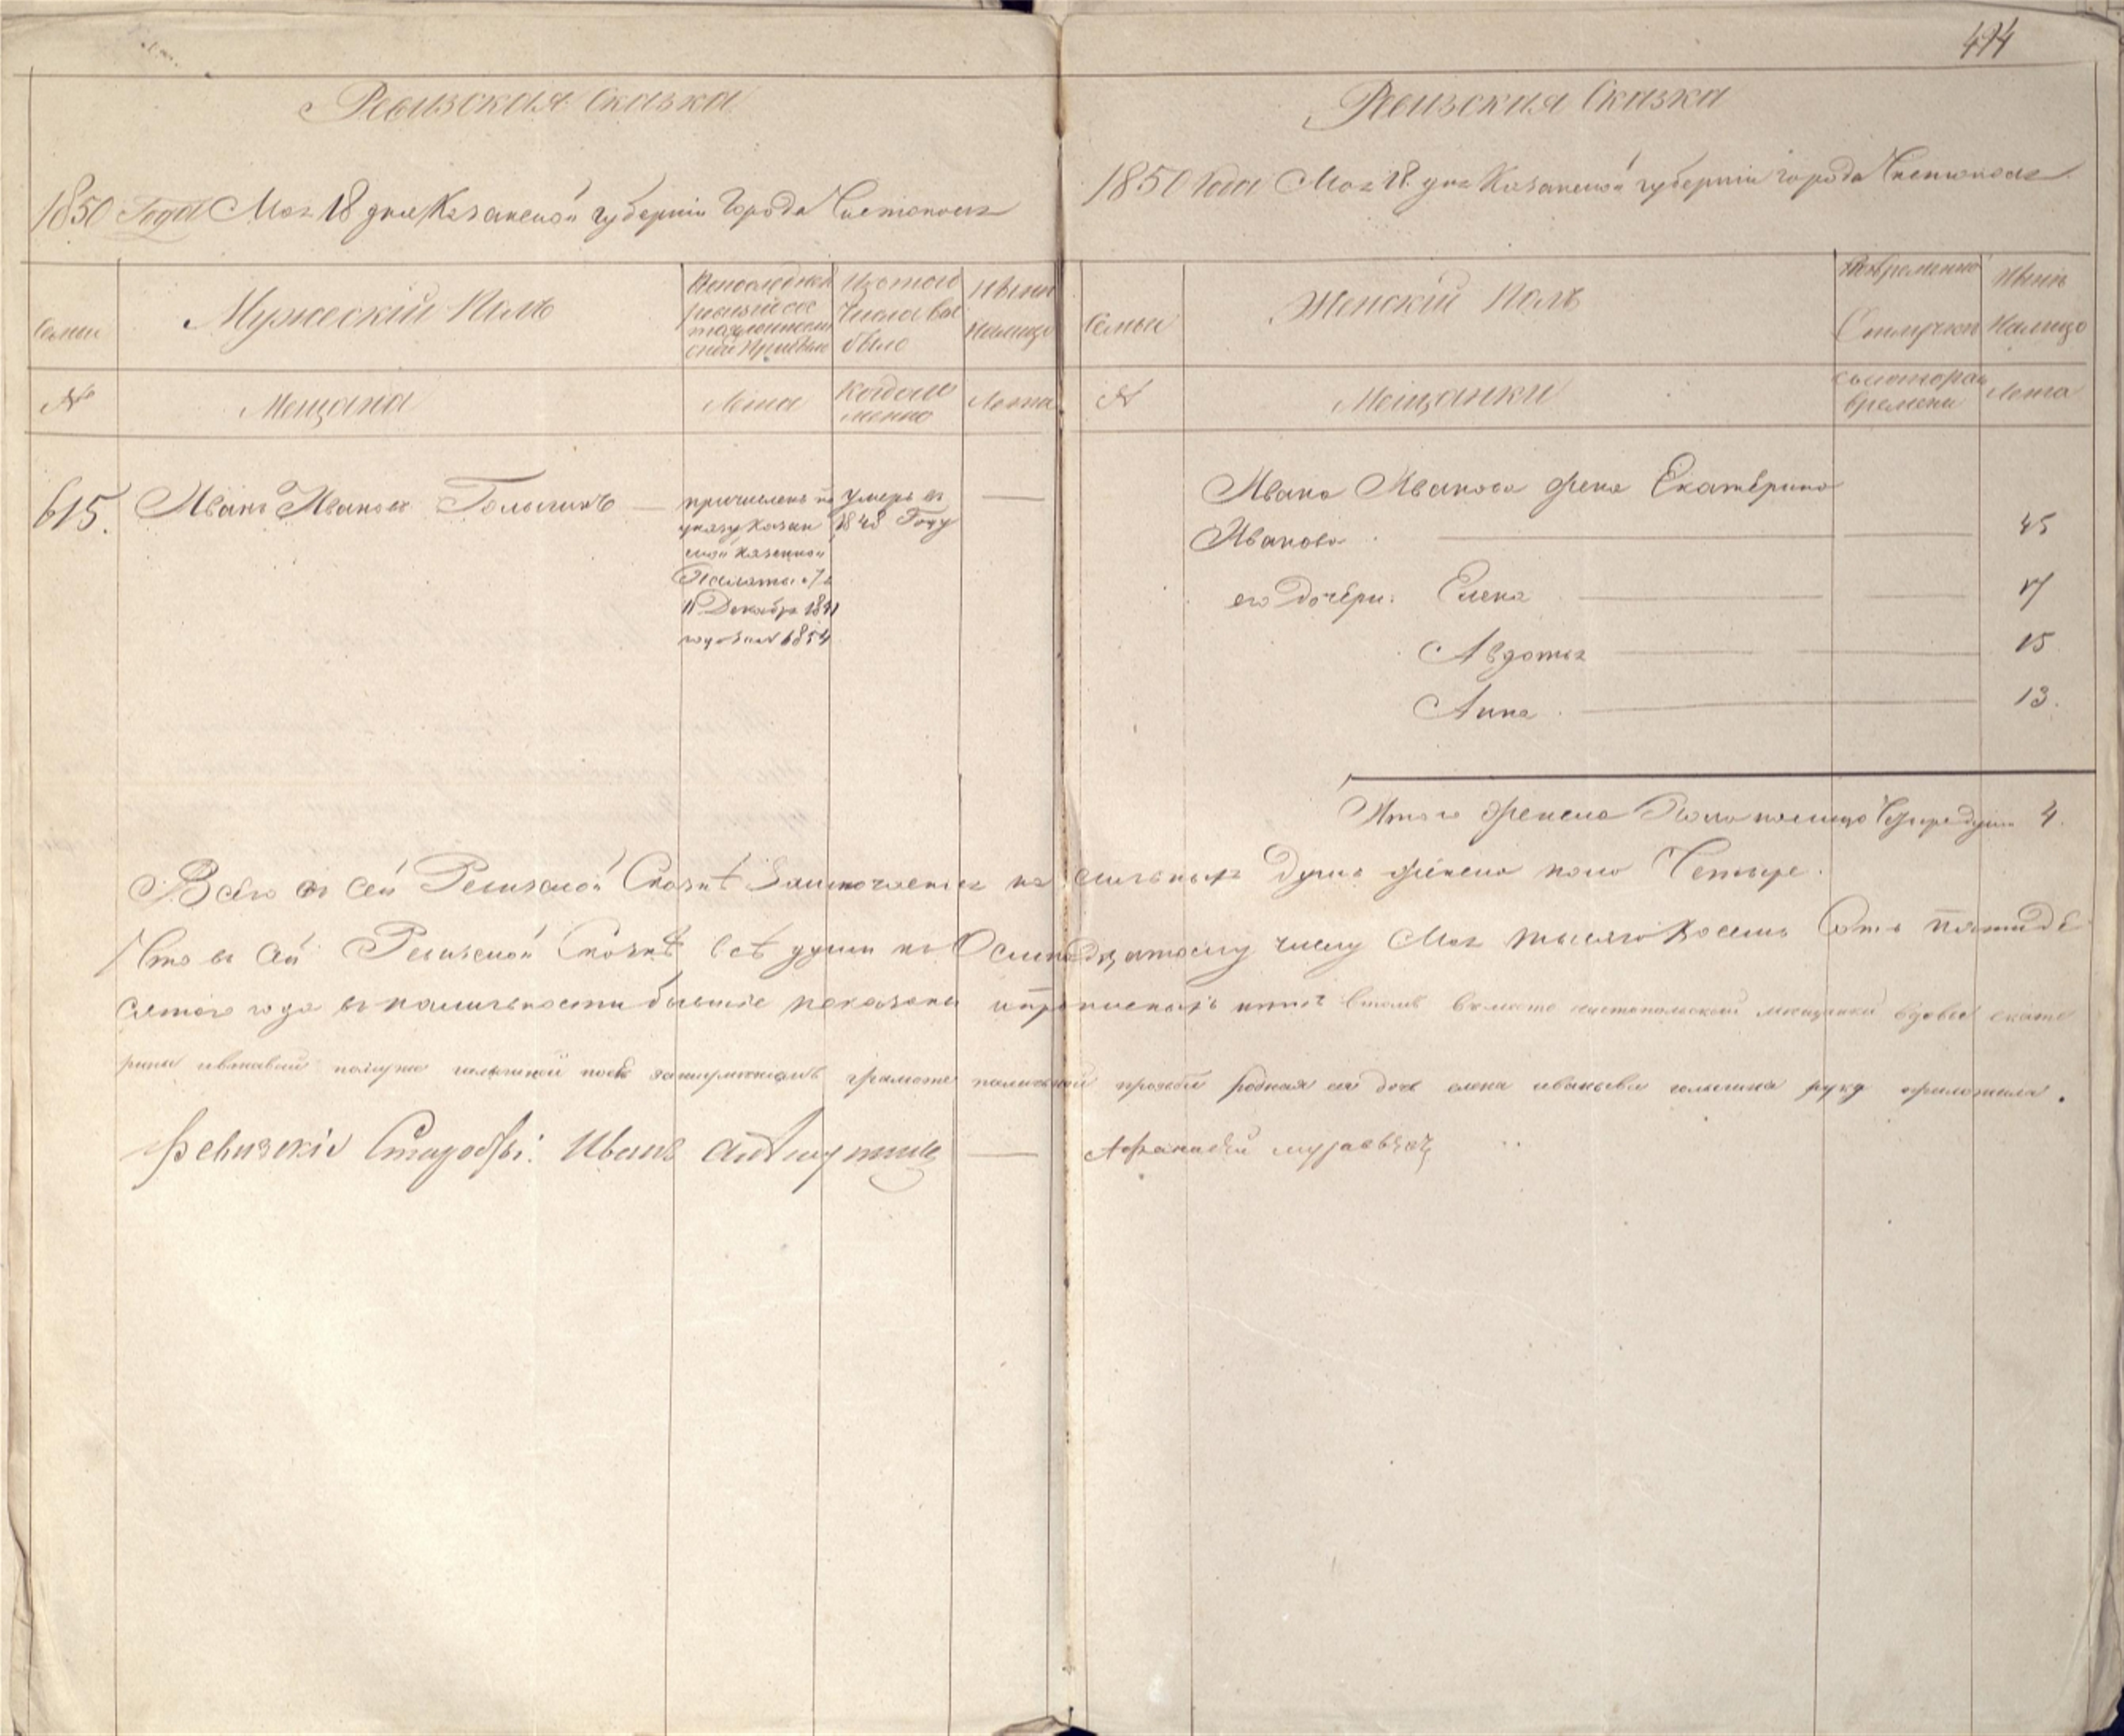 494
Ревизская Сказка
1850 Года Мая 18 дня Казанской губернiи Города Чистополя
Семьи
Мужескiй Полъ
По последней
ревизiи сос
тояло
или Прибыло
Изъ того
Числа вы
было
Ныне
Налицо
№
Мещана
Лета
Когда им
менно
Лета
615. Иванъ Ивановъ Голышинъ
причисленъ по
указу Казан
ской казенной
Палаты
11 Декабря 1841
года за № 6854
Умеръ въ
1848 Году
Ревизская Сказка
1850 Года Мая 18. дня Казанской губернiи города Чистополя
Семьи
Женскiй Полъ
Во временной
Отлучки
Ныне
Налицо
№
Мещанки
съ которого
времени
Лета
Ивана Иванова жена Екатерина
Иванова 45
его дочери: Елена 17
Авдотья 15
Анна 13.
Итого женска Пола налицо Четыре души 4.
Всего въ сей Ревизской Сказкѣ Заключается наличныхъ Душъ женска пола Четыре.
Что въ сей Ревизской Сказкѣ всѣ души къ Осмнадцатому числу Мая тысяча Восемь Сотъ пятиде
сятого года въ наличности бывшiе показаны и прописныхъ нѣтъ Въ томъ вместо чистопольской мещанки вдовы екате
рины ивановой голышиной грамоте по личной прозьбе родная ей дочь елена иванова голышина руку приложила.
Ревизскiй Староста: Иванъ
Афанасей